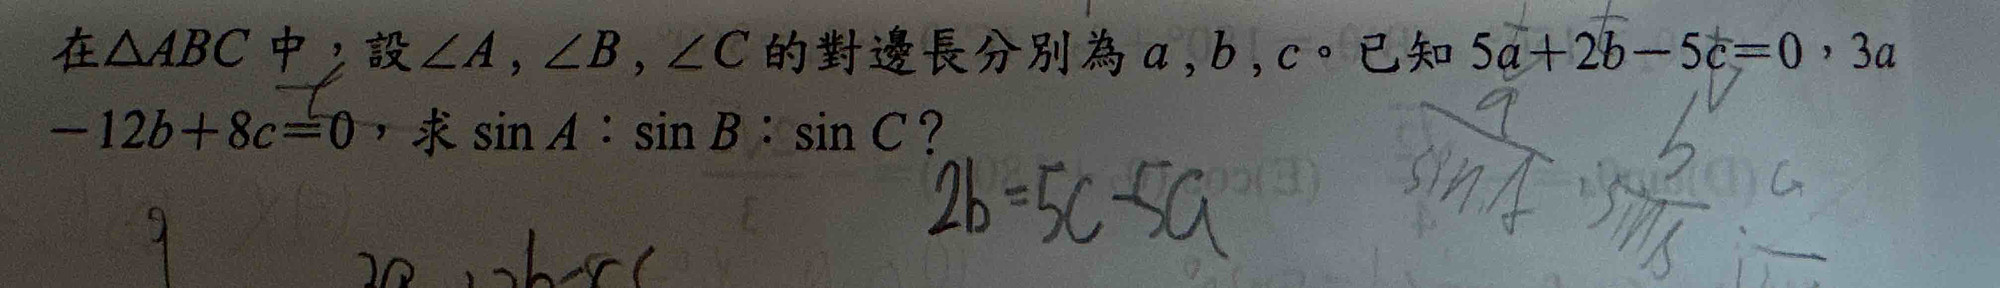 在△ABC 中，設∠A , ∠B , ∠C 的對邊長分別為 a , b , c。已知 5a+2b−5c=0，3a
−12b+8c=0，求 sin A：sin B：sin C？
2b=5c-5a
a
sinA
b
sinB